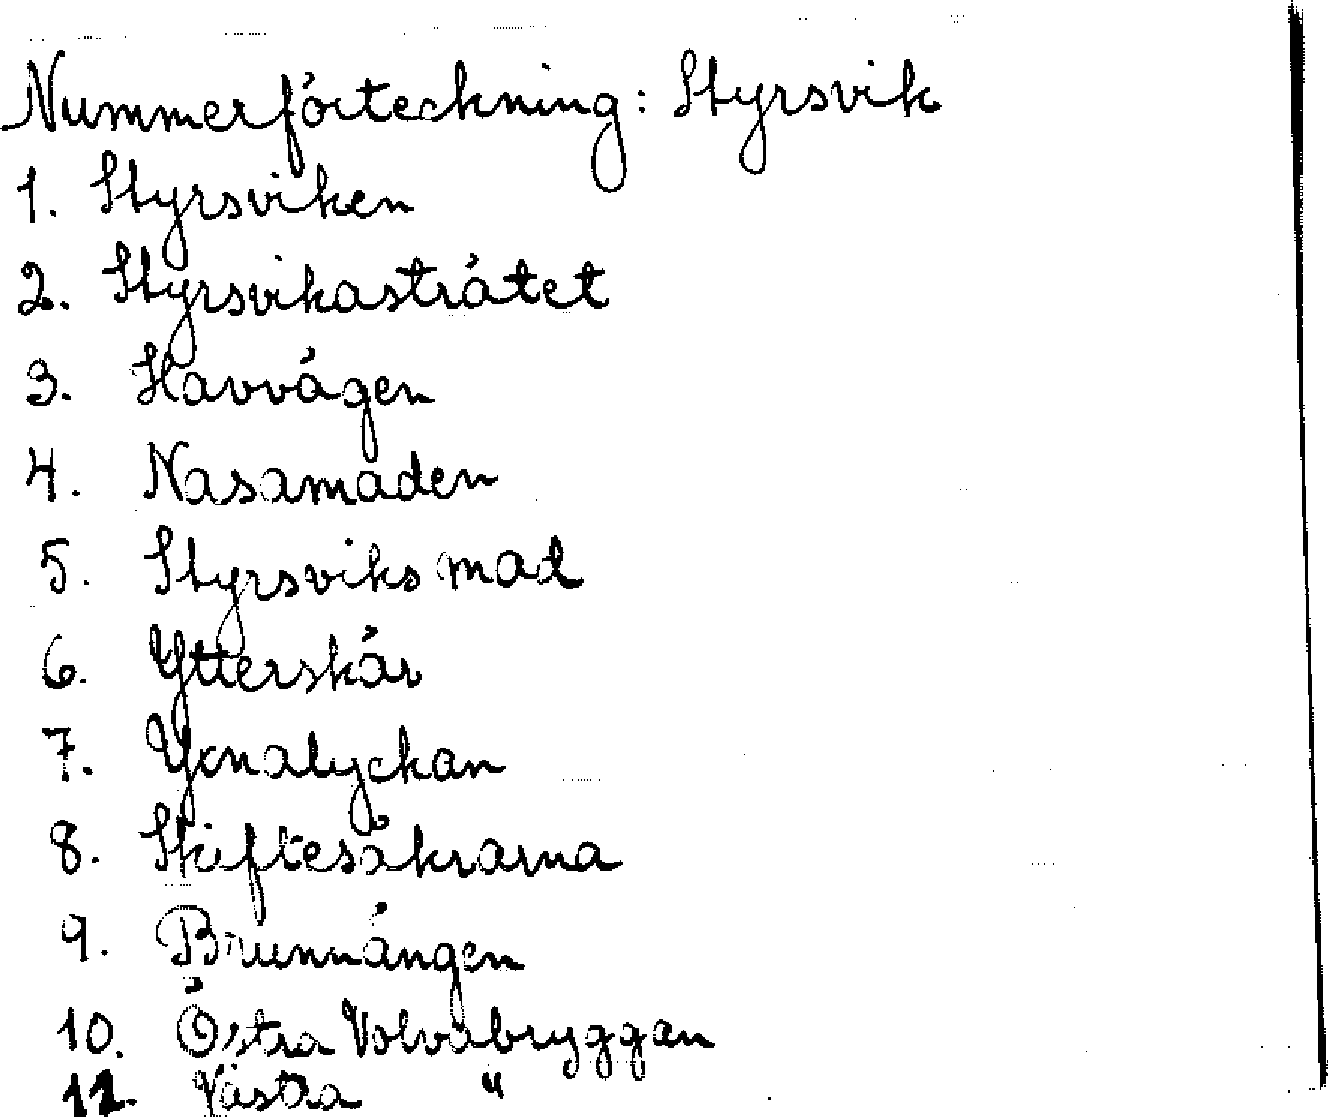 Nummerförteckning: Styrsvik
1. Styrsviken
2. Styrsvikastråtet
3. Havvägen
4. Nasamaden
5. Styrsviks mad
6. Ytterskär
7. Yxnalyckan
8. Skiftesåkrarna
9. Brunnängen
10. Östra Volvobryggan
11. Västra "